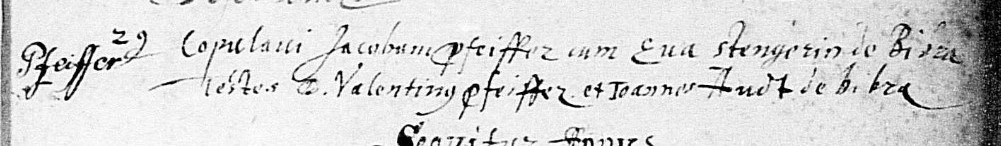 Pfeiffer 29 Copulavi Jacobum Pfeiffer cum Eva Stengerin de Bibra
testes D. Valentinus Pfeiffer et Joannes de bibra
Sequitur Annus